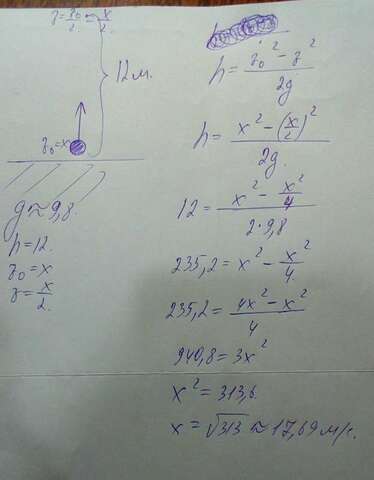 𝑧=𝑧₀/2=x/2.
12м.
z₀=x
g≈9,8.
h=12.
z₀=x
z=x/2.
h=(z₀²-z²)/2g
h=(x²-(x/2)²)/2g.
12=(x²-x²/4)/(2·9,8)
235,2=x²-x²/4.
235,2=(4x²-x²)/4
940,8=3x²
x²=313,6.
x=√313≈17,69м/с.